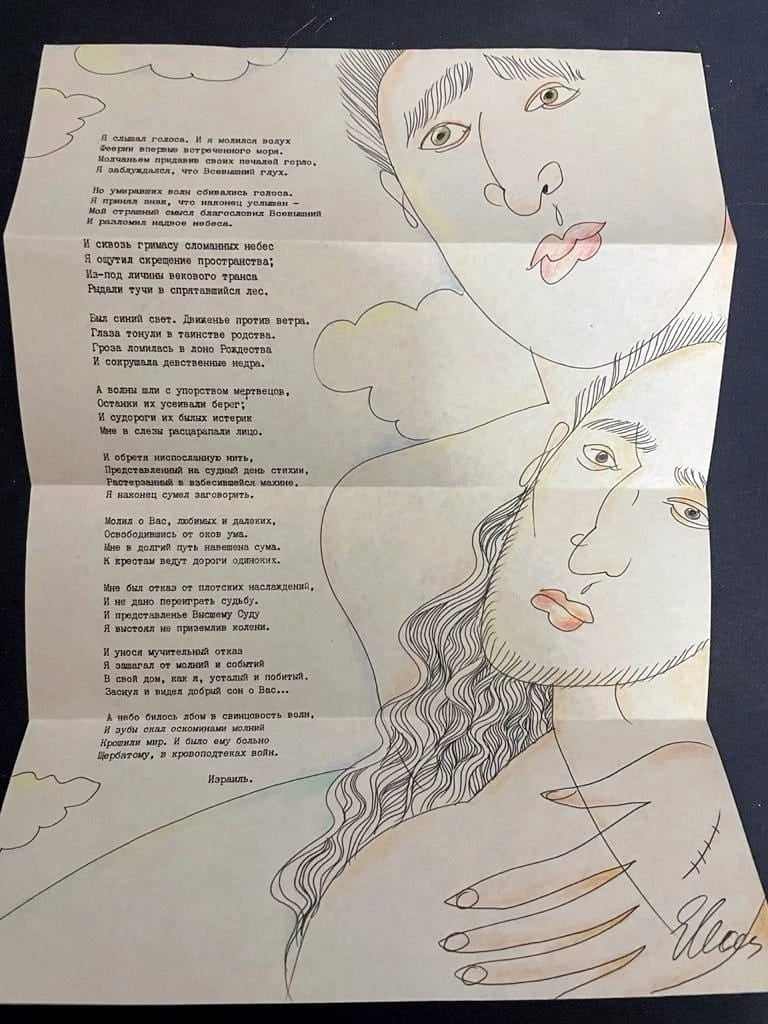 Я слышал голоса. И я молился вслух
Феерии впервые встреченного моря.
Молчаньем придавив своих печалей горло,
Я заблуждался, что Всевышний глух.
Но умиравших волн сбивались голоса.
Я принял знак, что наконец услышан -
Мой страшный смысл благословил Всевышний
И разломил надвое небеса.
И сквозь гримасу сломанных небес
Я ощутил скрещение пространства;
Из-под личины векового транса
Рыдали тучи в спрятавшийся лес.
Был синий свет. Движенье против ветра.
Глаза тонули в таинстве родства.
Гроза ломилась в лоно Рождества
И сокрушала девственные недра.
А волны шли с упорством мертвецов,
Останки их усеивали берег;
И судороги их былых истерик
Мне в слезы расцарапали лицо.
И обретя ниспосланную нить,
Представленный на судный день стихии,
Растерзанный в взбесившейся махине,
Я наконец сумел заговорить.
Молил о Вас, любимых и далеких,
Освободившись от оков ума.
Мне в долгий путь навешена сума.
К крестам ведут дороги одиноких.
Мне был отказ от плотских наслаждений,
И не дано переиграть судьбу.
И представленье Высшему Суду
Я выстоял не приземлив колени.
И унося мучительный отказ
Я зашагал от молний и событий
В свой дом, как я, усталый и побитый.
Заснул и видел добрый сон о Вас...
А небо билось лбом в свинцовость волн,
И зубы скал оскоминами молний
Крошили мир. И было ему больно
Щербатому, в кровоподтеках войн.
Израиль.